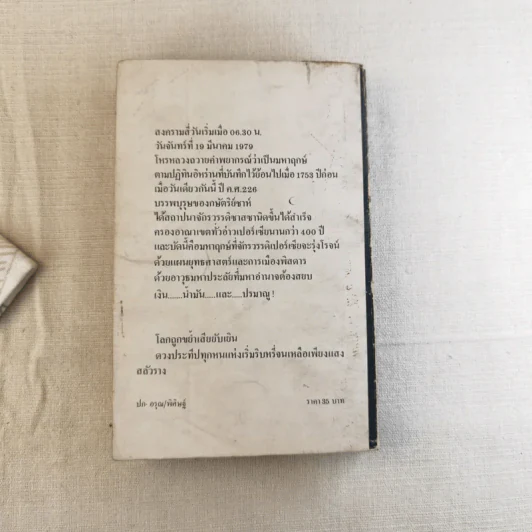 สงครามสี่วันเริ่มเมื่อ 06.30 น.
วันจันทร์ที่ 19 มีนาคม 1979
โหรหลวงถวายคำพยากรณ์ว่าเป็นมหาฤกษ์
ตามปฏิทินอิหร่านที่บันทึกไว้ย้อนไปเมื่อ 1753 ปีก่อน
เมื่อวันเดียวกันนี้ ปี ค.ศ.226
บรรพบุรุษของกษัตริย์ชาห์
ได้สถาปนาจักรวรรดิซาสซานิดขึ้นได้สำเร็จ
ครองอาณาเขตทั่วอ่าวเปอร์เซียนานกว่า 400 ปี
และบัดนี้คือมหาฤกษ์ที่จักรวรรดิเปอร์เซียจะรุ่งโรจน์
ด้วยแผนยุทธศาสตร์และการเมืองพิสดาร
ด้วยอาวุธมหาประลัยที่มหาอำนาจต้องสยบ
เงิน.......น้ำมัน.....และ.....ปรมาณู !
โลกถูกขย้ำเสียยับเยิน
ดวงประทีปทุกหนแห่งเริ่มริบหรี่จนเหลือเพียงแสง
สลัวราง
ปก- อรุณ/พิศิษฐ์ ราคา 35 บาท